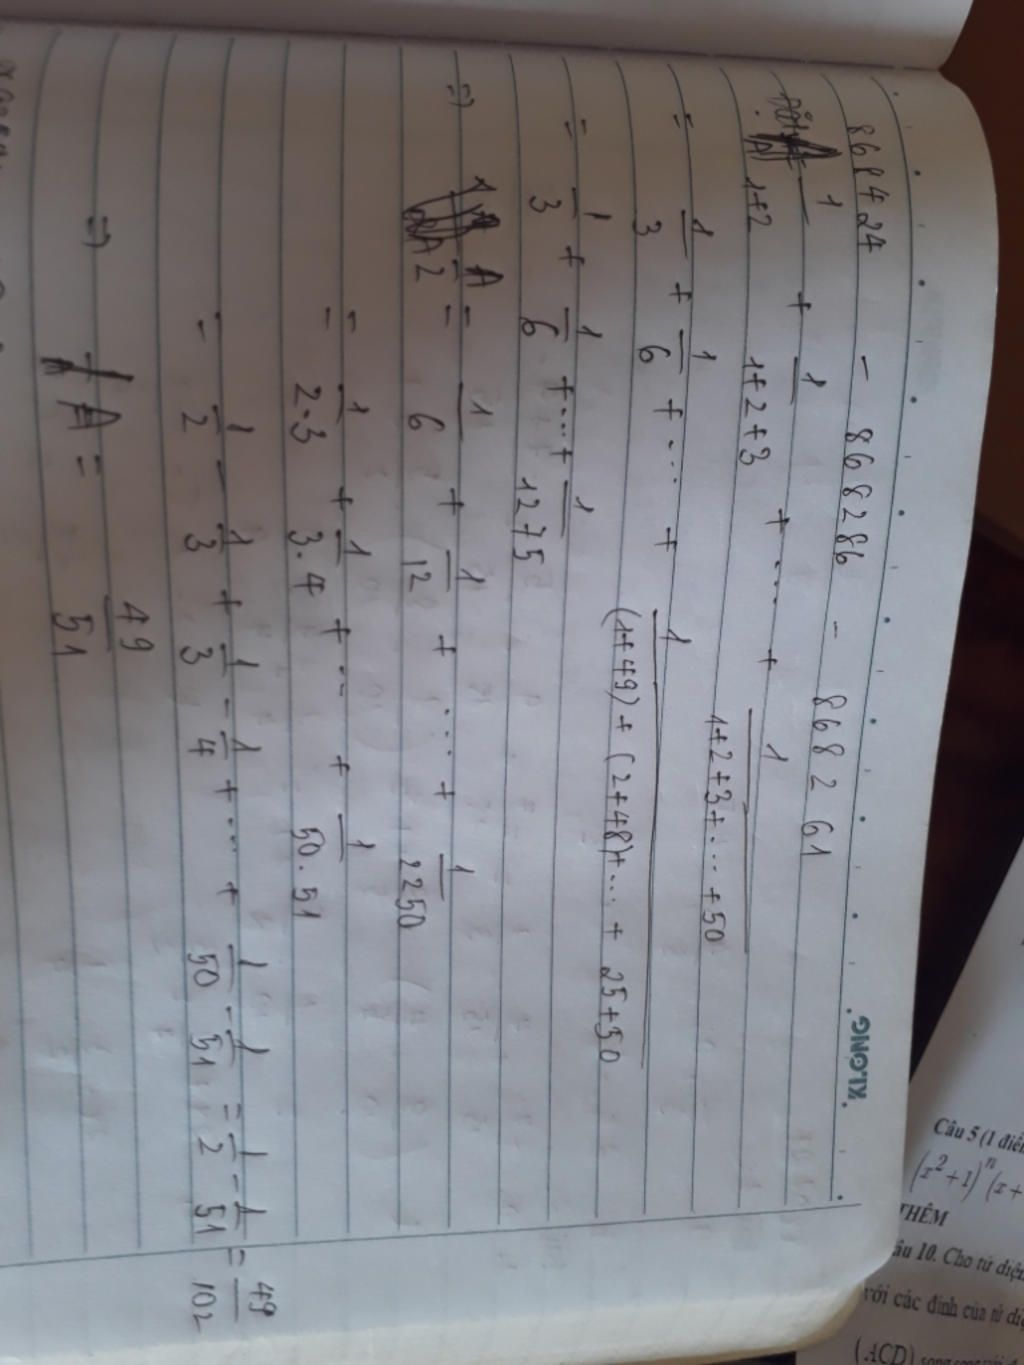 KLONG
868424 - 868286 - 868261
A) 1/(1+2) + 1/(1+2+3) + ... + 1/(1+2+3+...+50)
= 1/3 + 1/6 + ... + 1/((1+49)+(2+48)+...+ 25+50)
= 1/3 + 1/6 +...+ 1/1275
=> A/2 = 1/6 + 1/12 + ... + 1/2250
= 1/2.3 + 1/3.4 + ... + 1/50.51
= 1/2 - 1/3 + 1/3 - 1/4 + ... + 1/50 - 1/51 = 1/2 - 1/51 = 49/102
=> A = 49/51
Câu 5 (1 điể
(x²+1)ⁿ(x+
THÊM
âu 10. Cho tứ diệ
với các đỉnh của tứ di
(ACD)